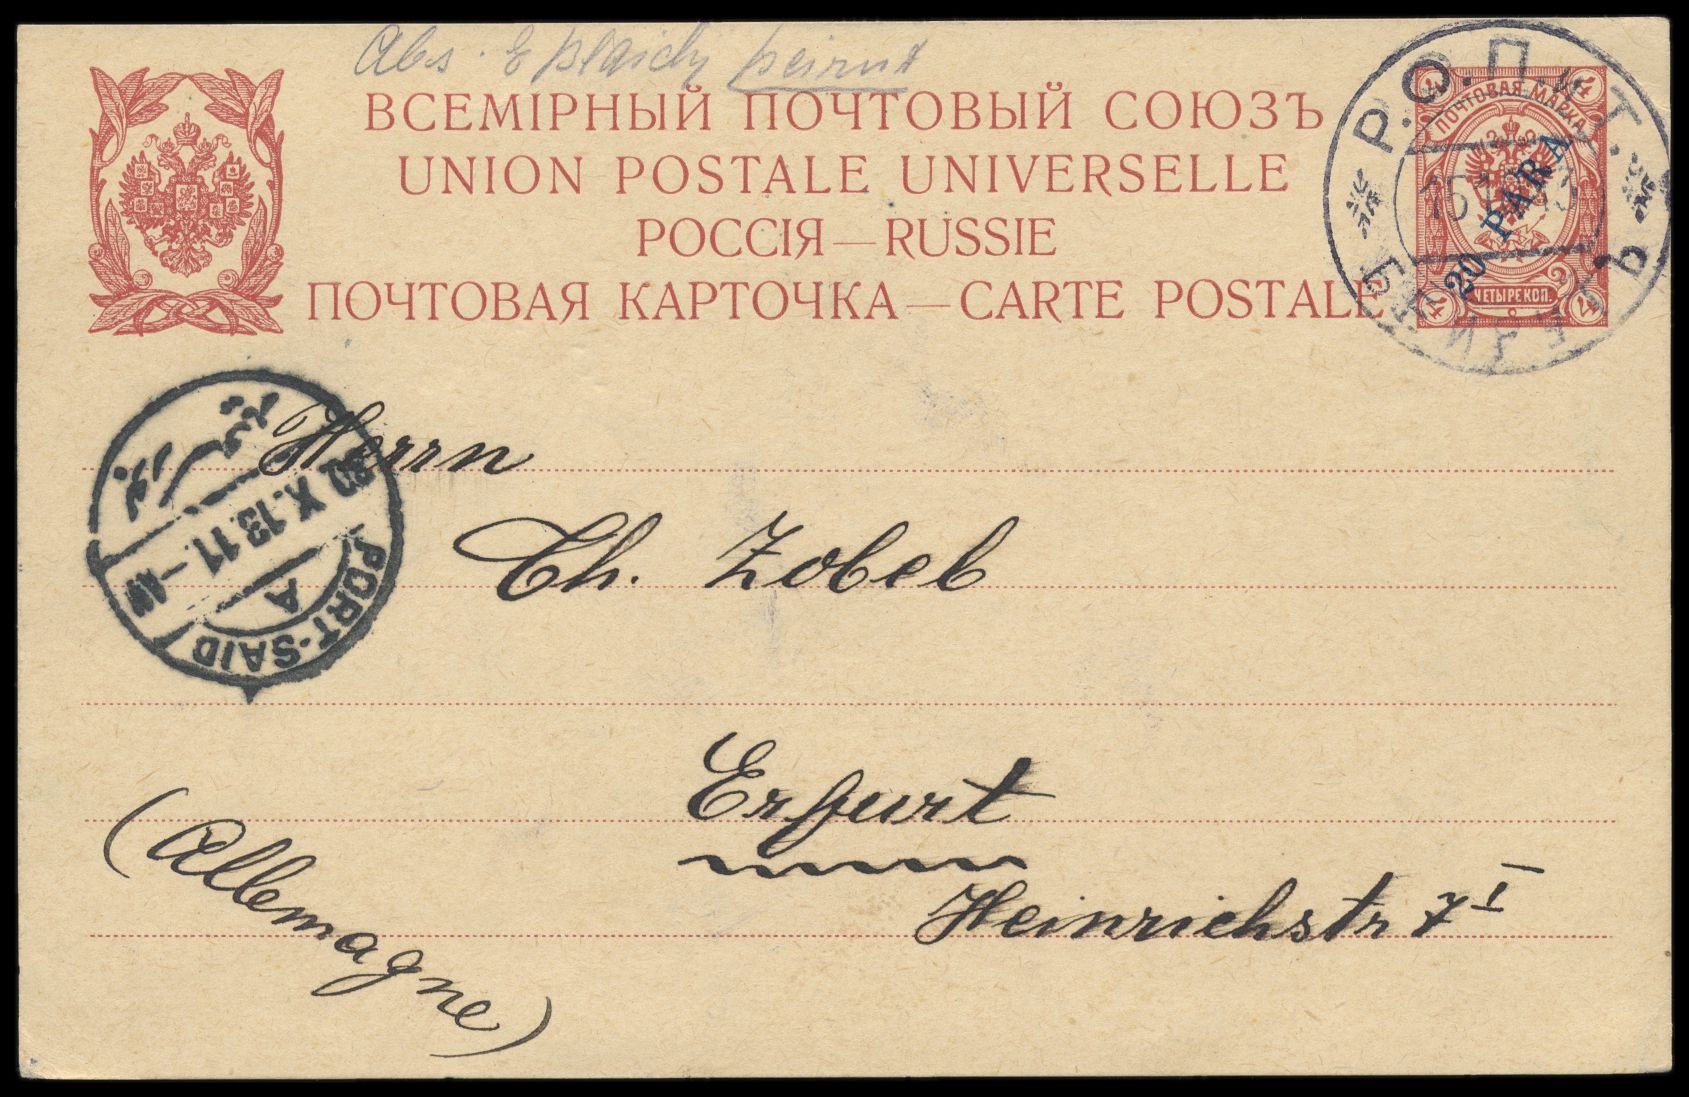 Abs. E Plaich Beirut
ВСЕМІРНЫЙ ПОЧТОВЫЙ СОЮЗЪ
UNION POSTALE UNIVERSELLE
РОССІЯ — RUSSIE
ПОЧТОВАЯ КАРТОЧКА — CARTE POSTALE
Р.О.П.и Т.
ПОЧТОВАЯ МАРКА
4 4
20 PARA
ЧЕТЫРЕ КОП.
4 4
بور سعيد
X.13 11.-AM
A
PORT-SAID
Herrn
Ch. Zobel
Erfurt
Heinrichstr 7 I
(Allemagne)